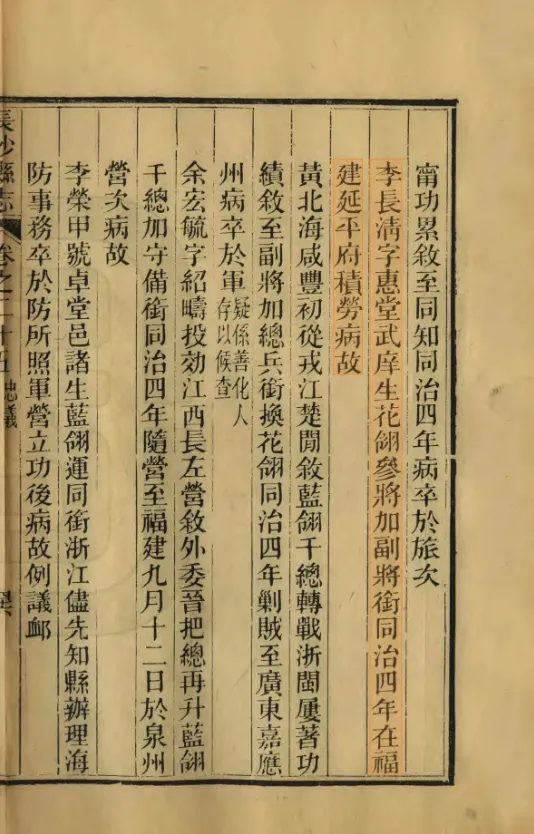 甯功累敘至同知同治四年病卒於旅次
李長清字惠堂武庠生花翎參將加副將銜同治四年在福
建延平府積勞病故
黃北海咸豐初從戎江楚閒敘藍翎千總轉戰浙閩屢著功
績敘至副將加總兵銜換花翎同治四年剿賊至廣東嘉應
州病卒於軍疑係善化人
存以候查
余宏毓字紹疇投効江西長左營敘外委晉把總再升藍翎
千總加守備銜同治四年隨營至福建九月十二日於泉州
營次病故
李榮甲號卓堂邑諸生藍翎運同銜浙江儘先知縣辦理海
防事務卒於防所照軍營立功後病故例議衈
長沙縣志 卷之二十五 忠義